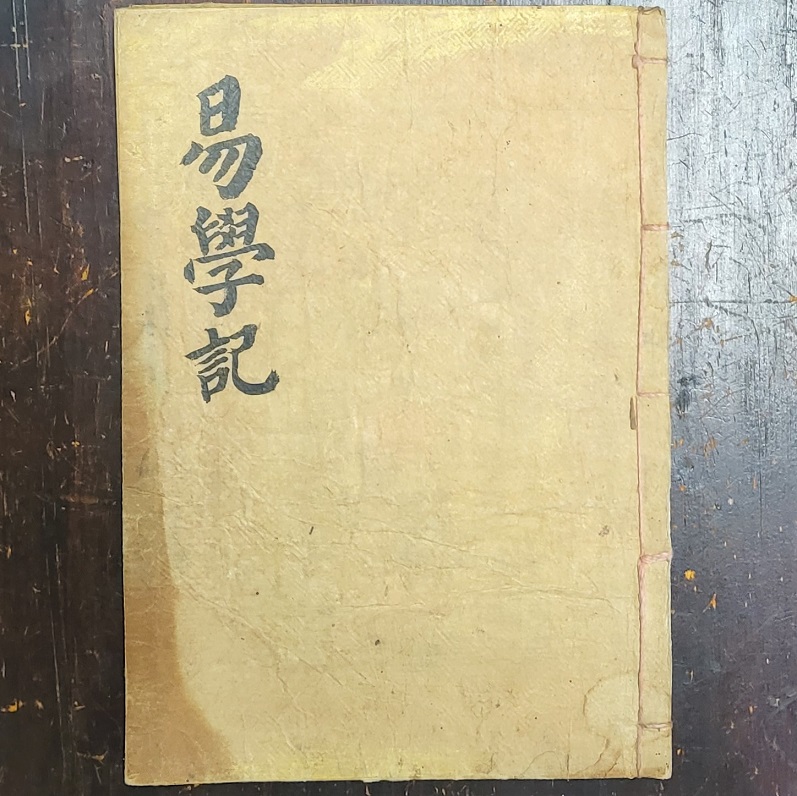 易學記